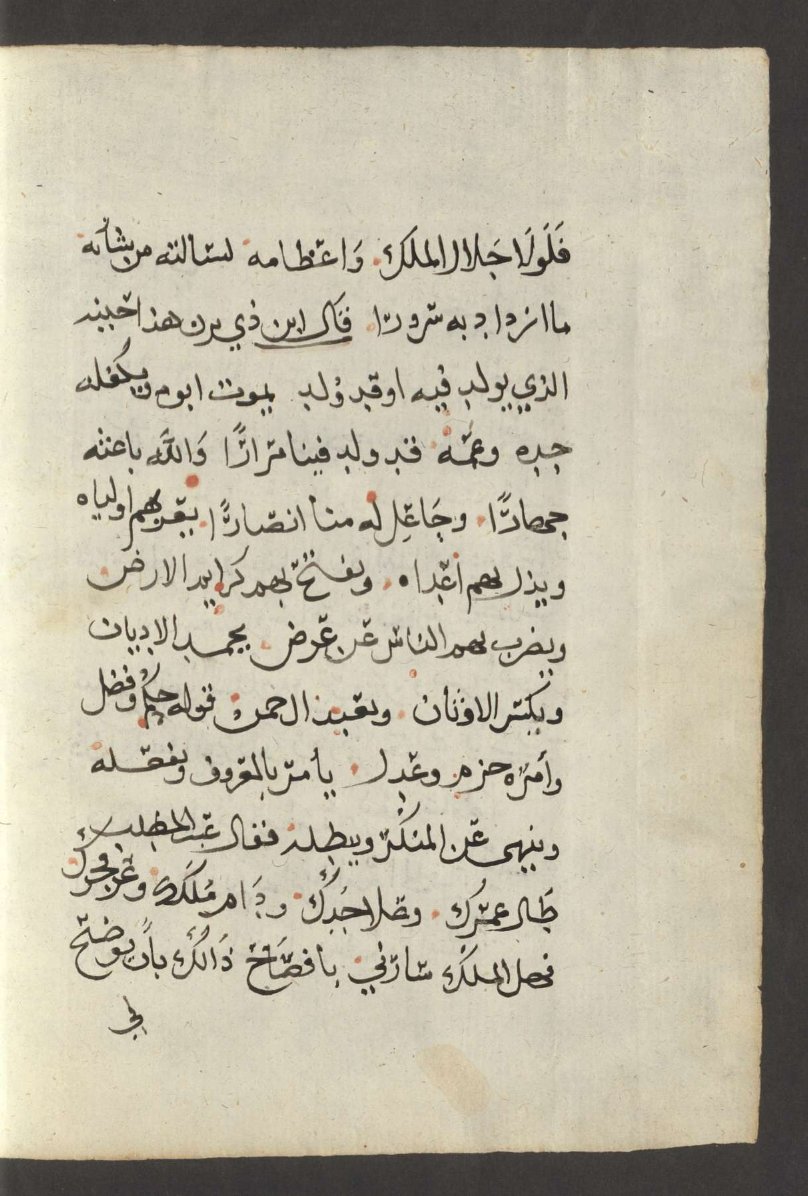 فَلَولَا جَلال الملك وَاعظامه لسالته من شانه
ما ازداد به سرورًا قال ابن ذي يزن هذا حينه
الذي يولد فيه او قد وُلد يموت ابوه ويكفله
جده وعمّه قد ولد فينا مرارًا وَاللَّه باعثه
جهارًا وجَاعِل له منا انصارًا يعزبهم اولياه
ويذل بهم اعداه ويفتح بهم كرايم الارض
ويضرب بهم الناس عن عرض يخمد الاديان
ويكسر الاوثان ويعبد الرحمن قوله حكم وفضل
وأمره حزم وعدل يأمر بالمعروف ويفعله
وينهى عن المنكر ويبطله فقال عبد المطلب
طال عمرك وعلا جَدك ودَام مُلكك وعز فخرك
فهل الملك سارّني بافصَاح ذَالك بأن يوضح
لي